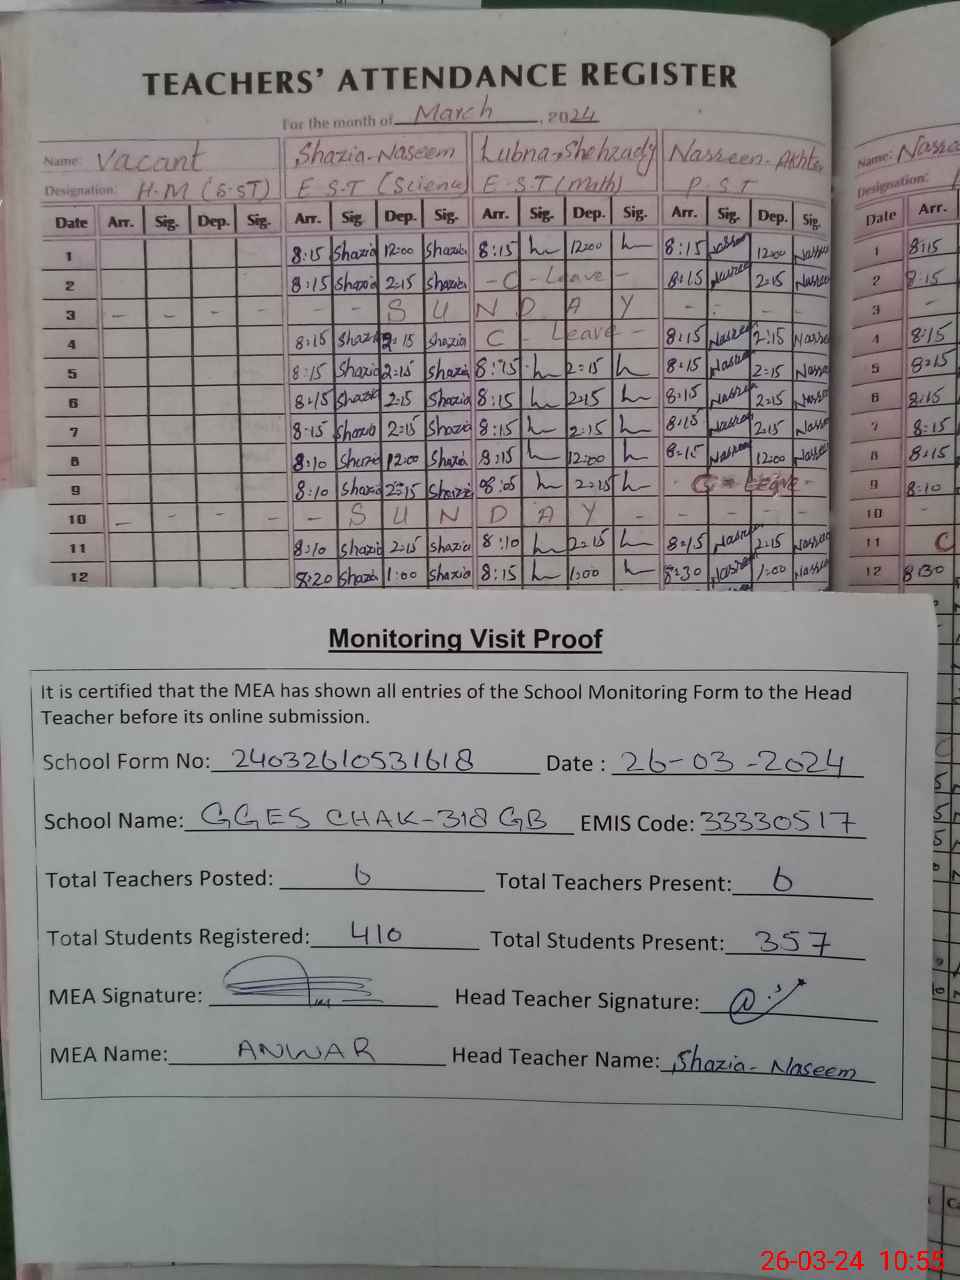 TEACHERS' ATTENDANCE REGISTER
For the month of March, 2024
Name: Vacant Shazia-Naseem Lubna-Shehzady Nasreen-Akhter Name:
Designation: H.M (S.ST) E.S.T (Science) E.S.T (math) P.S.T Designation:
Date Arr. Sig. Dep. Sig. Arr. Sig. Dep. Sig. Arr. Sig. Dep. Sig. Arr. Sig. Dep. Sig. Date Arr.
1 8:15 Shazia 12:00 Shazia 8:15 12:00 8:15 Nasreen 12:00 1 8:15
2 8:15 Shazia 2:15 Shazia - C - Leave - 8:15 Nasreen 2:15 2 8:15
3 - - - - - - S U N D A Y - - - - 3 -
4 8:15 Shazia 2:15 Shazia C - Leave - 8:15 Nasreen 2:15 4 8:15
5 8:15 Shazia 2:15 Shazia 8:15 2:15 8:15 Nasreen 2:15 5 8:15
6 8:15 Shazia 2:15 Shazia 8:15 2:15 8:15 Nasreen 2:15 6 8:15
7 8:15 Shazia 2:15 Shazia 8:15 2:15 8:15 Nasreen 2:15 7 8:15
8 8:10 Shazia 12:00 Shazia 8:15 12:00 8:15 Nasreen 12:00 8 8:15
9 8:10 Shazia 2:15 Shazia 8:05 2:15 - C - Leave - 9 8:10
10 - - - - - S U N D A Y - - - - 10 -
11 8:10 Shazia 2:15 Shazia 8:10 2:15 8:15 Nasreen 2:15 11 C
12 8:20 Shazia 1:00 Shazia 8:15 1:00 8:30 Nasreen 1:00 12 8:30
Monitoring Visit Proof
It is certified that the MEA has shown all entries of the School Monitoring Form to the Head
Teacher before its online submission.
School Form No: 24032610531618 Date : 26-03-2024
School Name: GGES CHAK-318 GB EMIS Code: 33330517
Total Teachers Posted: 6 Total Teachers Present: 6
Total Students Registered: 410 Total Students Present: 357
MEA Signature: Head Teacher Signature:
MEA Name: ANWAR Head Teacher Name: Shazia-Naseem
26-03-24 10:55